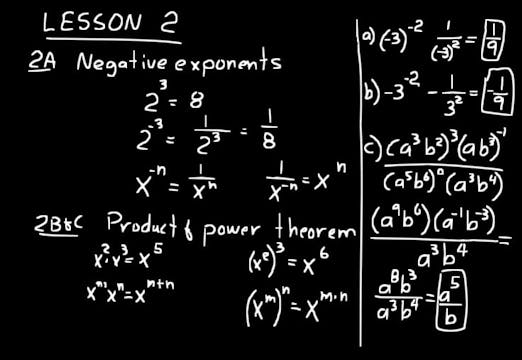 LESSON 2
2A Negative exponents
2³ = 8
2⁻³ = 1/2³ = 1/8
x⁻ⁿ = 1/xⁿ 1/x⁻ⁿ = xⁿ
2B&C Product & power theorem
x²·x³ = x⁵ (x²)³ = x⁶
xᵐ·xⁿ = xᵐ⁺ⁿ (xᵐ)ⁿ = xᵐ·ⁿ
a) (-3)⁻² 1/(-3)² = 1/9
b) -3⁻² -1/3² = -1/9
c) (a³b²)³(ab³)⁻¹ / (a⁵b⁶)⁰(a³b⁴)
(a⁹b⁶)(a⁻¹b⁻³) / a³b⁴ =
a⁸b³ / a³b⁴ = a⁵/b